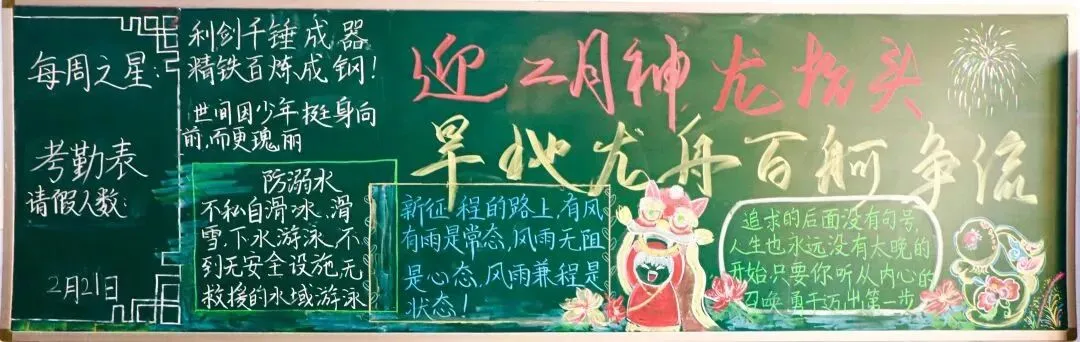 每周之星:
考勤表
请假人数:
2月21日
利剑千锤成器
精铁百炼成钢!
世间因少年挺身向
前,而更瑰丽
迎二月神龙抬头
旱地龙舟百舸争流
防溺水
不私自滑冰、滑
雪,下水游泳,不
到无安全设施,无
救援的水域游泳
新征程的路上,有风
有雨是常态,风雨无阻
是心态,风雨兼程是
状态!
追求的后面没有句号,
人生也永远没有太晚的
开始,只要你听从内心的
召唤,勇于迈出第一步